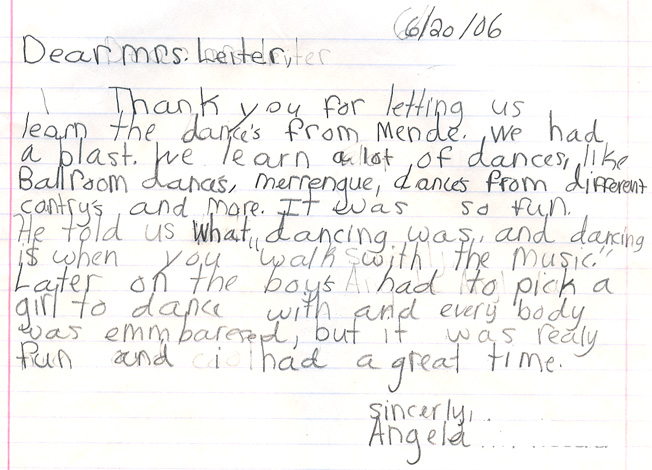 6/20/06
Dear mrs. Leiter,
Thank you for letting us
learn the dances from Mende. We had
a blast. We learn a lot of dances, like
Ballroom dances, merrengue, dances from different
contry's and more. It was so fun.
He told us what dancing was, and dancing
is when you "walk with the music."
Later on the boys had to pick a
girl to dance with and every body
was emmbaresed, but it was realy
fun and i had a great time.
sincerly,
Angela